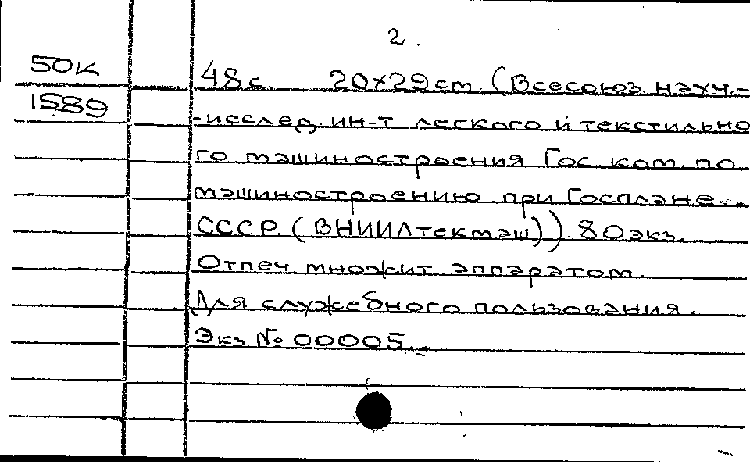 2.
50К
1589
48 с 20×29 cm. (Всесоюз. науч.-
-исслед. ин-т легкого и текстильно
го машиностроения Гос. ком. по
машиностроению при Госплане
СССР (ВНИИЛтекмаш)). 80 экз.
Отпеч. множит. аппаратом.
Для служебного пользования.
Экз № 00005